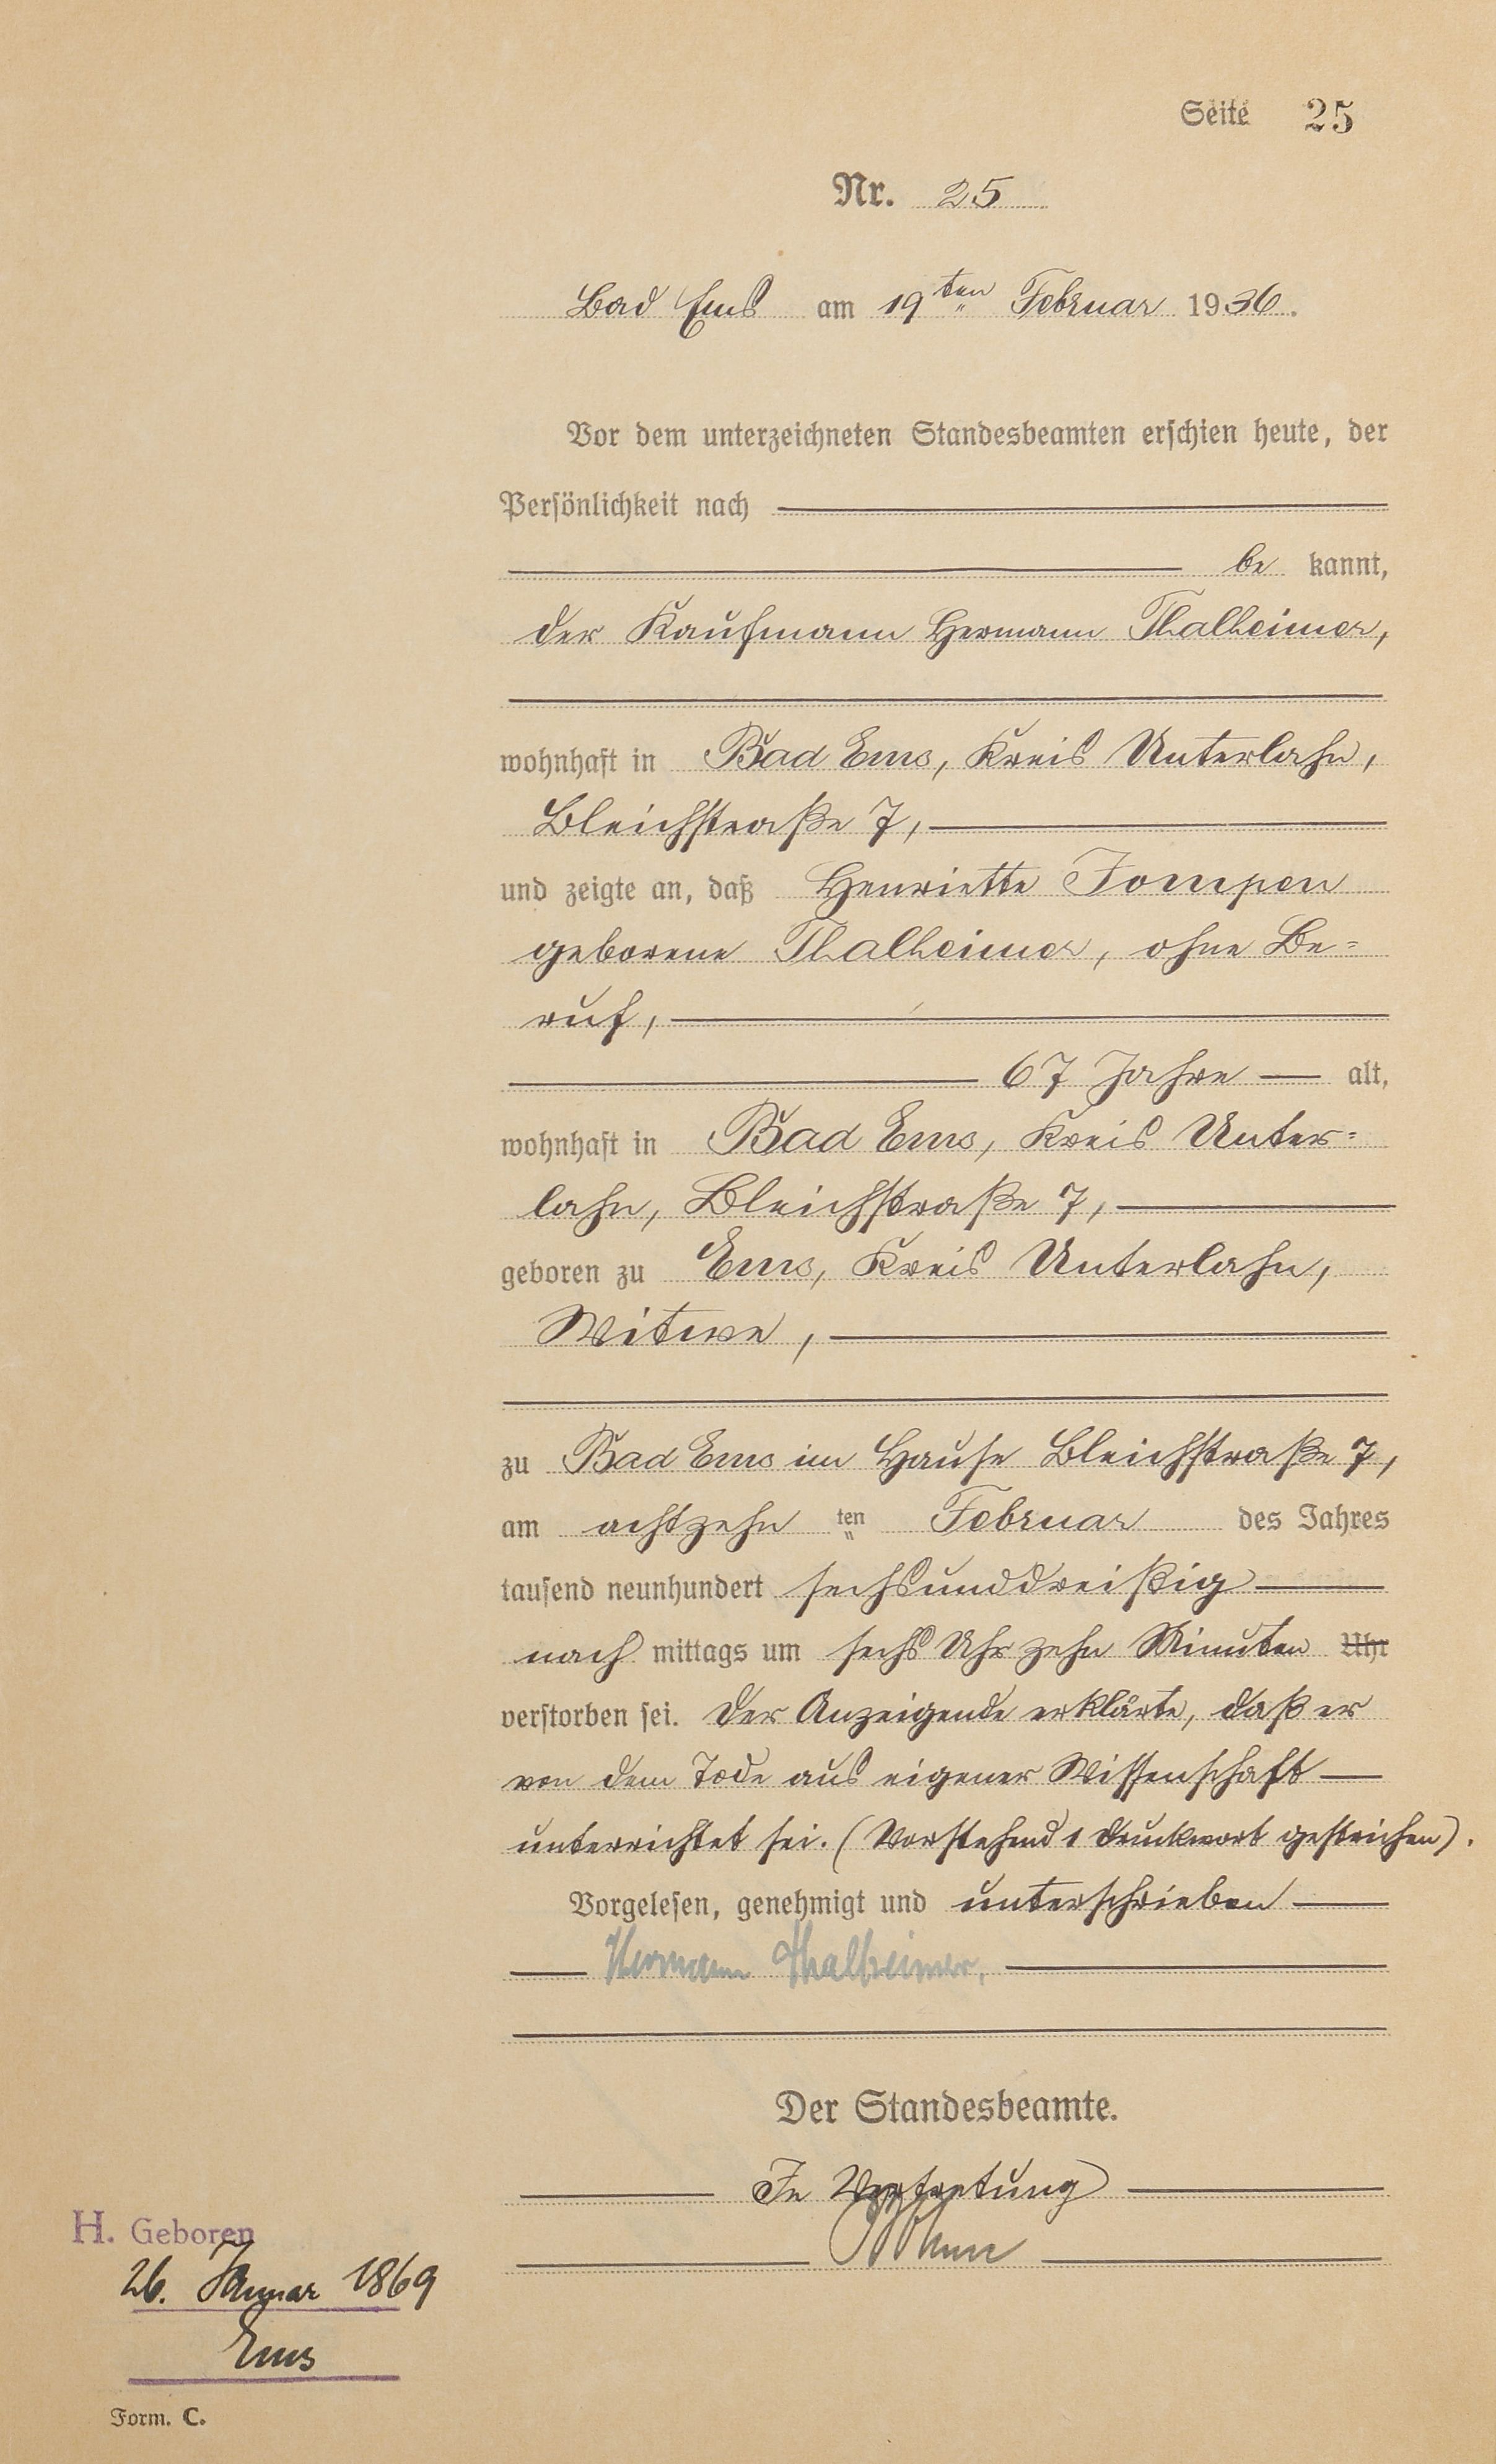 Seite 25
Nr. 25
Bad Ems am 19ten Februar 1936.
Vor dem unterzeichneten Standesbeamten erschien heute, der
Persönlichkeit nach
be kannt,
der Kaufmann Hermann Thalheimer,
wohnhaft in Bad Ems, Kreis Unterlahn,
Bleichstraße 7,
und zeigte an, daß Henriette Tompen
geborene Thalheimer, ohne Be=
ruf,
67 Jahre alt,
wohnhaft in Bad Ems, Kreis Unter=
lahn, Bleichstraße 7,
geboren zu Ems, Kreis Unterlahn,
Witwe,
zu Bad Ems im Hause Bleichstraße 7,
am achtzehn ten Februar des Jahres
tausend neunhundert sechsunddreißig
nach mittags um sechs Uhr zehn Minuten Uhr
verstorben sei. Der Anzeigende erklärte, daß er
von dem Tode aus eigener Wissenschaft
unterrichtet sei. (Vorstehend 1 Druckwort gestrichen).
Vorgelesen, genehmigt und unterschrieben
Hermann Thalheimer,
Der Standesbeamte.
In Vertretung
H. Geboren
26. Januar 1869
Ems
Form. C.